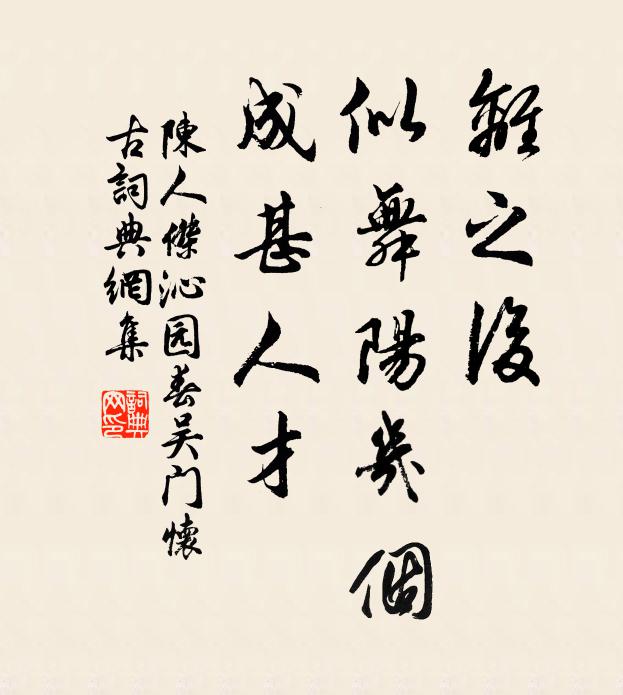 離之後
似舞陽幾個
成甚人才
陳人傑沁园春吴门懷
古詞典網集
詞典
网印